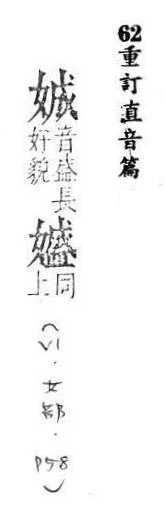 62重訂直音篇
娍音盛長好貌 同上(VI・女部・P58)